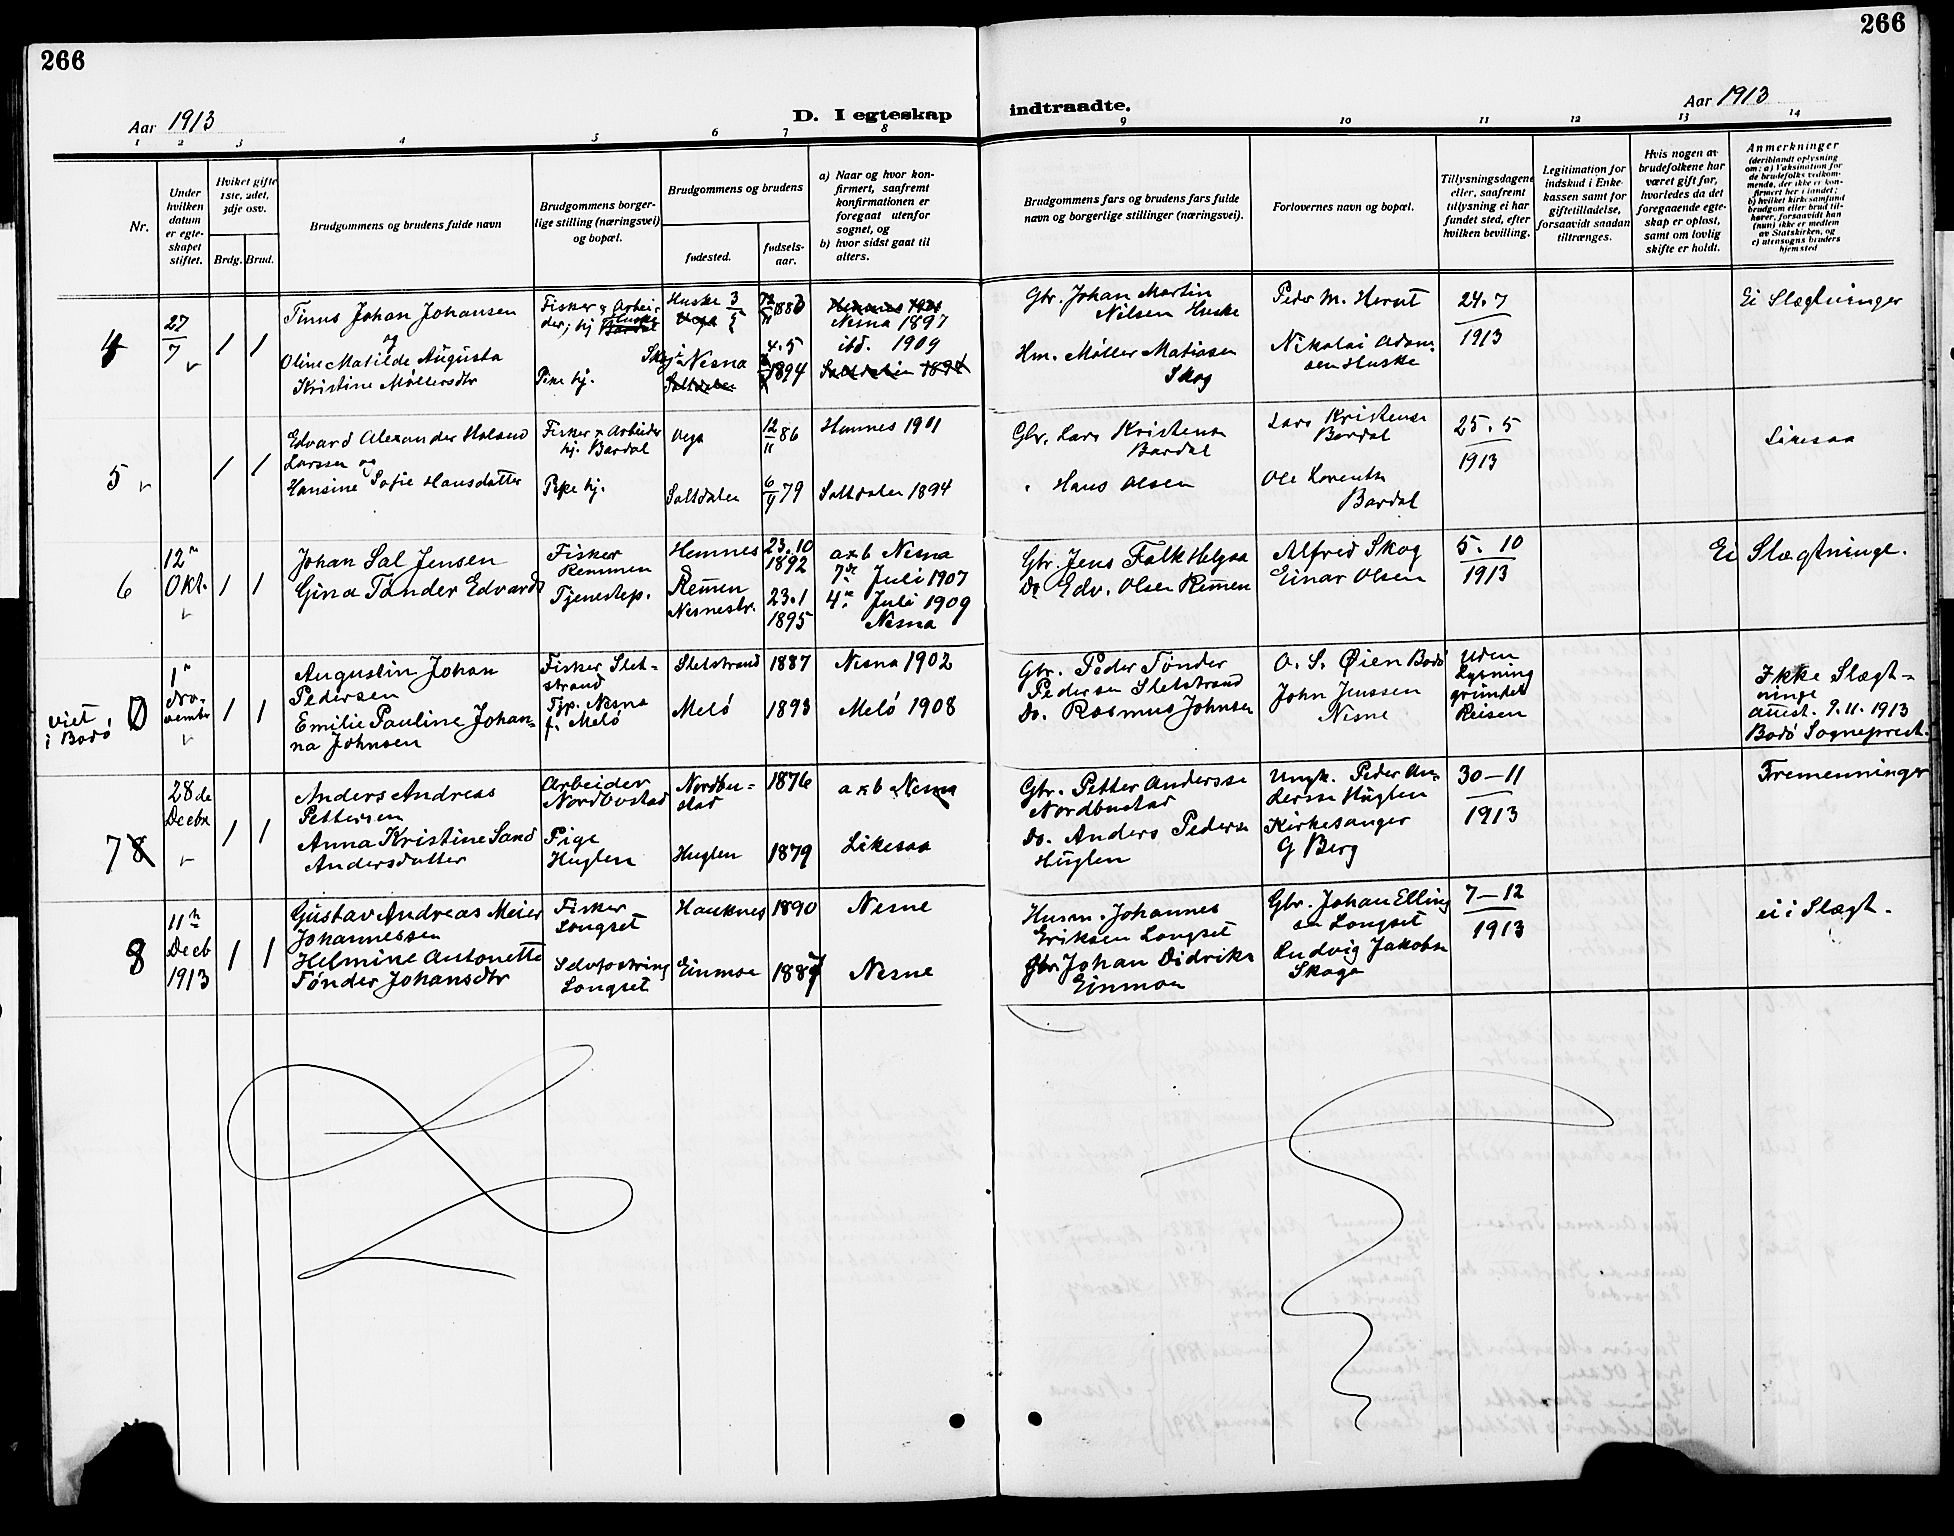 266
266
Aar 1913
D. I egteskap
indtraadte.
Aar 1913
1 2 3 4 5 6 7 8 9 10 11 12 13 14
Nr.
Under hvilken datum er egteskapet stiftet.
Hvilket gifte 1ste, 2det, 3dje osv.
Brdg. Brud.
Brudgommens og brudens fulde navn
Brudgommens borgerlige stilling (næringsvei) og bopæl.
Brudgommens og brudens
fødested.
fødselsaar.
a) Naar og hvor konfirmert, saafremt konfirmationen er foregaat utenfor sognet, og
b) hvor sidst gaat til alters.
Brudgommens fars og brudens fars fulde navn og borgerlige stillinger (næringsvei).
Forlovernes navn og bopæl.
Tillysningsdagene eller, saafremt tillysning ei har fundet sted, efter hvilken bevilling.
Legitimation for indskud i Enkekassen samt for giftetilladelse, forsaavidt saadan tiltrænges.
Hvis nogen av brudefolkene har været gift før, hvorledes da det foregaaende egteskap er opløst, samt om lovlig skifte er holdt.
Anmerkninger
(deriblandt oplysning om: a) Vaksination for de brudefolks vedkommende, der ikke er konfirmert her i landet; b) hvilket kirkesamfund brudgom eller brud tilhører, forsaavidt han (hun) ikke er medlem av Statskirken, og c) utensogns bruders hjemsted
4
27/7
1 1
Tinus Johan Johansen
og
Oline Matilde Augusta
Kristine Møllersdtr
Fisker & Arbeider; hj Bardal Huske
Pike hj.
Huske 3/5
Vega
Skog i Nesna
Saltdalen
1880
4.5
1894
Hemnes 1901
Nesna 1897
ibd. 1909
Saltdalen 1894
Gbr. Johan Martin
Nilsen Huske
Hm. Møller Matiasen
Skog
Peder M. Hernt
Nikolai Adamsen Huske
24.7
1913
Ei Slægtninger
5
1 1
Edvard Alexander Holsend
Larssen og
Hansine Sofie Hansdatter
Fisker & Arbeider
hj. Bardal
Pike hj.
Vega
Saltdalen
12/11 86
6/9 79
Hemnes 1901
Saltdalen 1894
Gbr. Lars Kristensen
Bardal
Hans Olsen
Lars Kristensen
Bardal
Ole Lorentsen
Bardal
25.5
1913
Likesaa
6
12te
Okt.
1 1
Johan Sal Jensen
Gina Tønder Edvards
Fisker
Remmen
Tjenestep.
Hemnes
Remmen
Nesnestr.
23.10
1892
23.1
1895
a & b Nesna
7de Juli 1907
4de Juli 1909
Nesna
Gbr. Jens Falk Helgaa
Do Edv. Olsen Remmen
Alfred Skog
Einar Olsen
5. 10
1913
Ei Slægtninge.
viet
i Bodø
0
1te
November
1 1
Augustin Johan
Pedersen
Emilie Pauline Johanna Johnsen
Fisker Sletstrand
Tjp. Nesna
f. Melø
Sletstrand
Melø
1887
1893
Nesna 1902
Melø 1908
Gbr. Peder Tønder
Pedersen Sletstrand
Do. Rasmus Johnsen
O. S. Øien Bodø
John Jenssen
Nesne
Uden
Lysning
grundet
Reisen
Ikke Slægtninge
attest. 9.11.1913
Bodø Sogneprest.
7 8
28de
Decbr
1 1
Anders Andreas
Pettersen
Anna Kristine Sand
Andersdatter
Arbeider
Nordbostad
Pige
Huglen
Nordbustad
Huglen
1876
1879
a & b Nesna
Likesaa
Gbr. Petter Anderssen
Nordbustad
Do. Anders Pedersen
Huglen
Ungk. Peder Andersen Huglen
Kirkesanger
G Berg
30-11
1913
Fremenninger
8
11te
Decb
1913
1 1
Gustav Andreas Meier
Johannessen
Helmine Antonette
Tønder Johansdtr
Fisker
Longset
Selvfostring
Longset
Hauknes
Einmoe
1890
1887
Nesne
Nesne
Husm. Johannes
Eriksen Longset
Gbr. Johan Didriks
Einmoen
Gbr. Johan Ellingsen Longset
Ludvig Jakobsen
Skoga
7-12
1913
ei i Slægt.